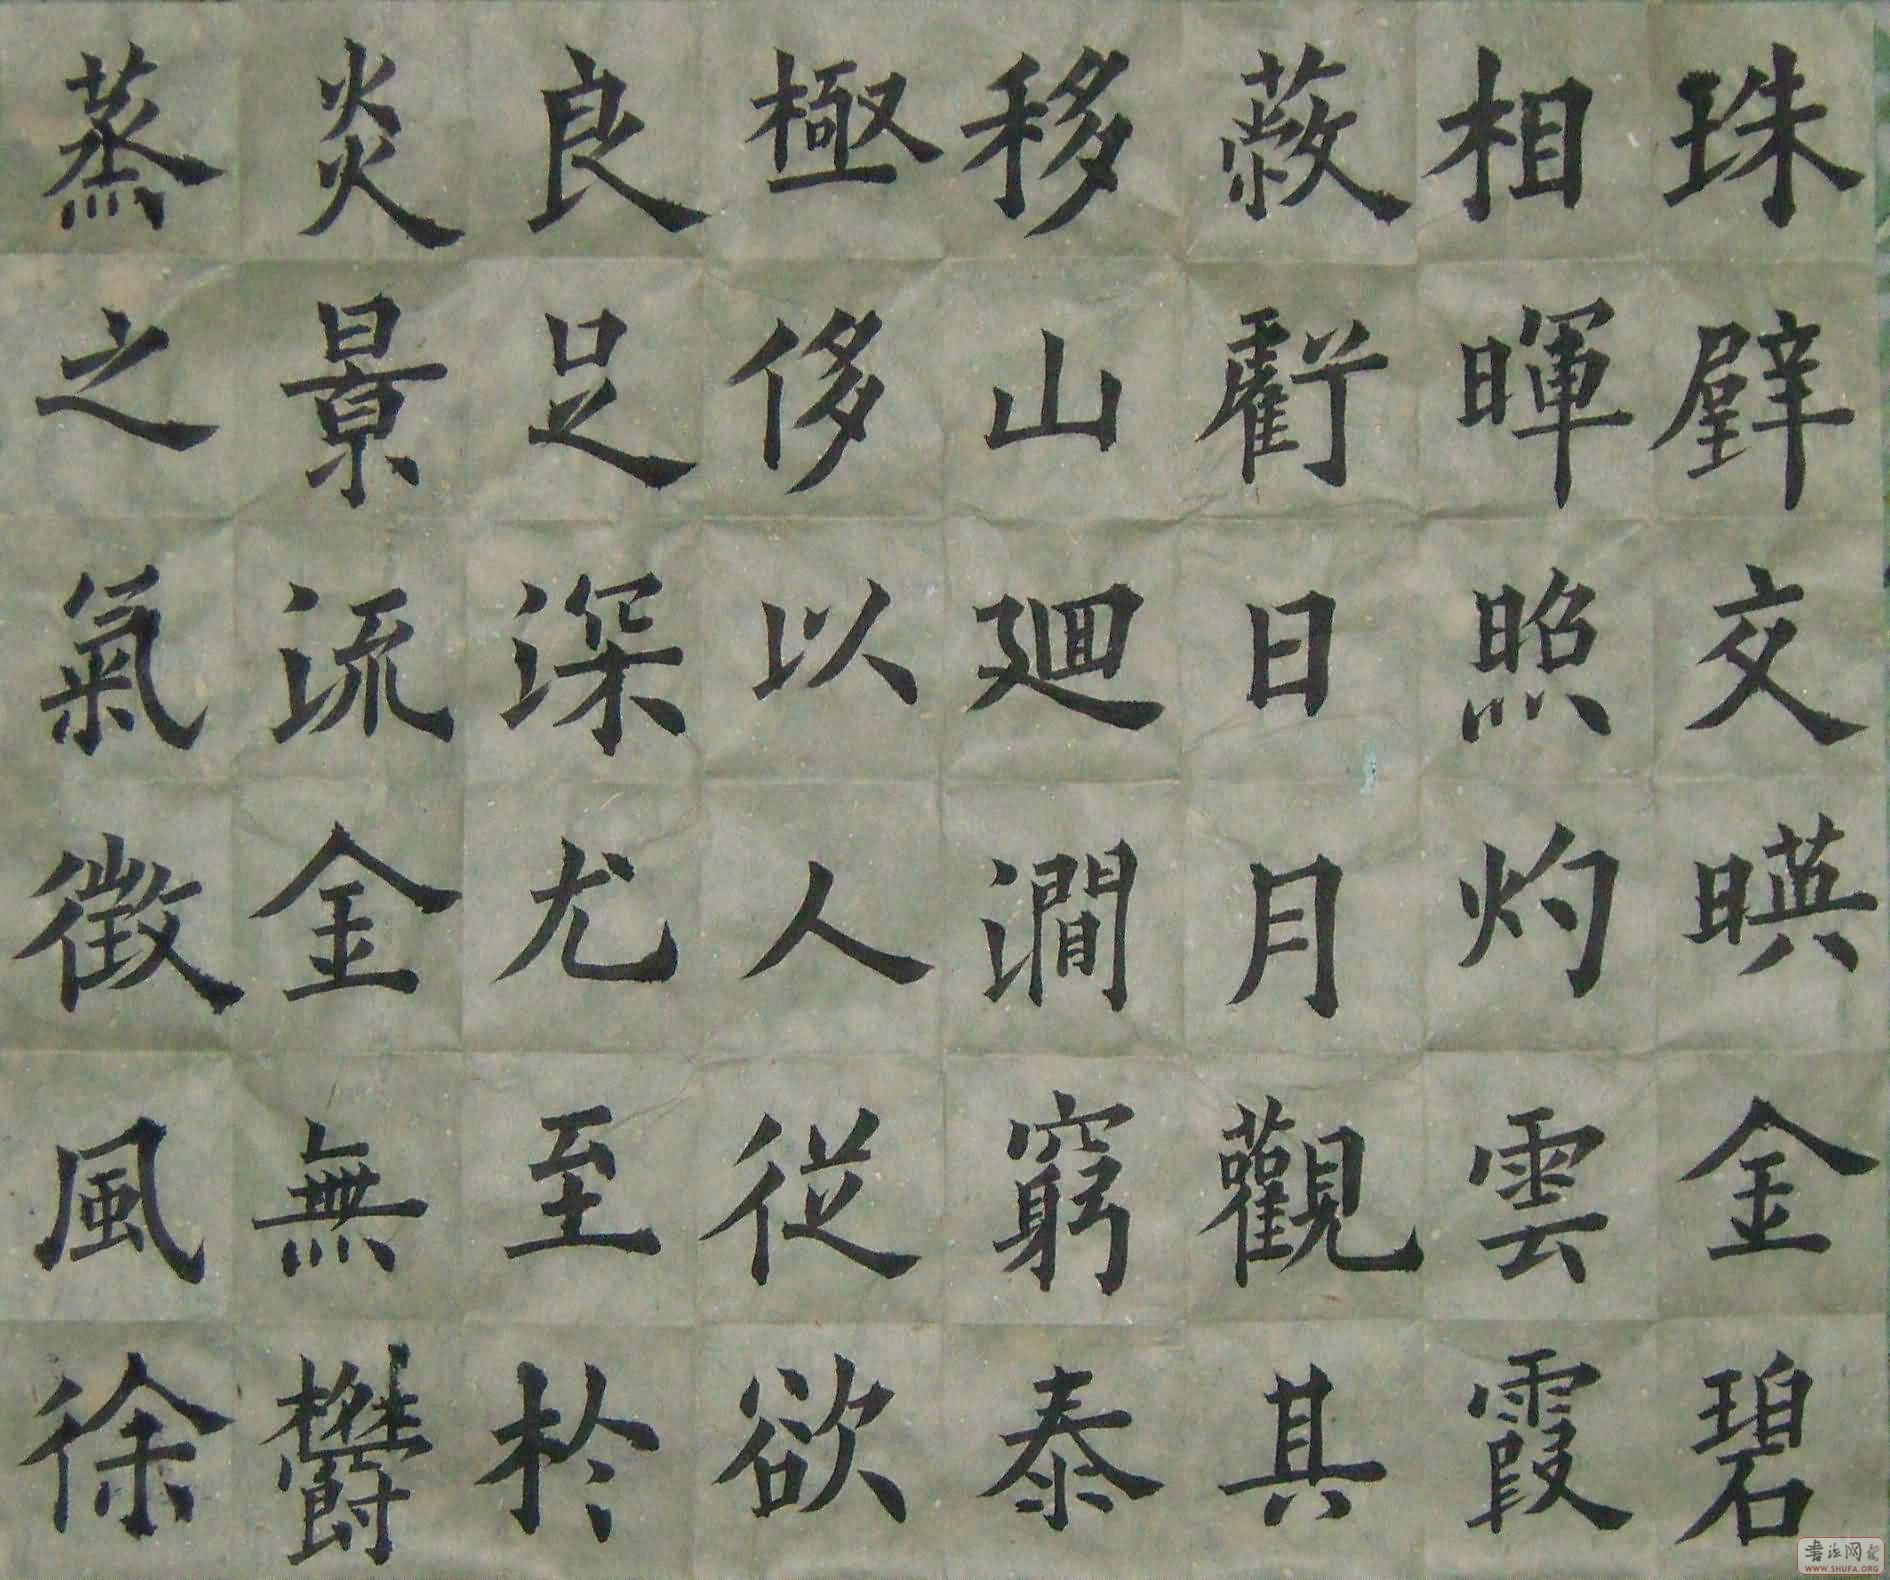 珠璧交暎金碧
相暉照灼雲霞
蔽虧日月觀其
移山廻澗窮泰
極侈以人從欲
良足深尤至扵
炎景流金無欝
蒸之氣微風徐
書法网
WWW.SHUFA.ORG